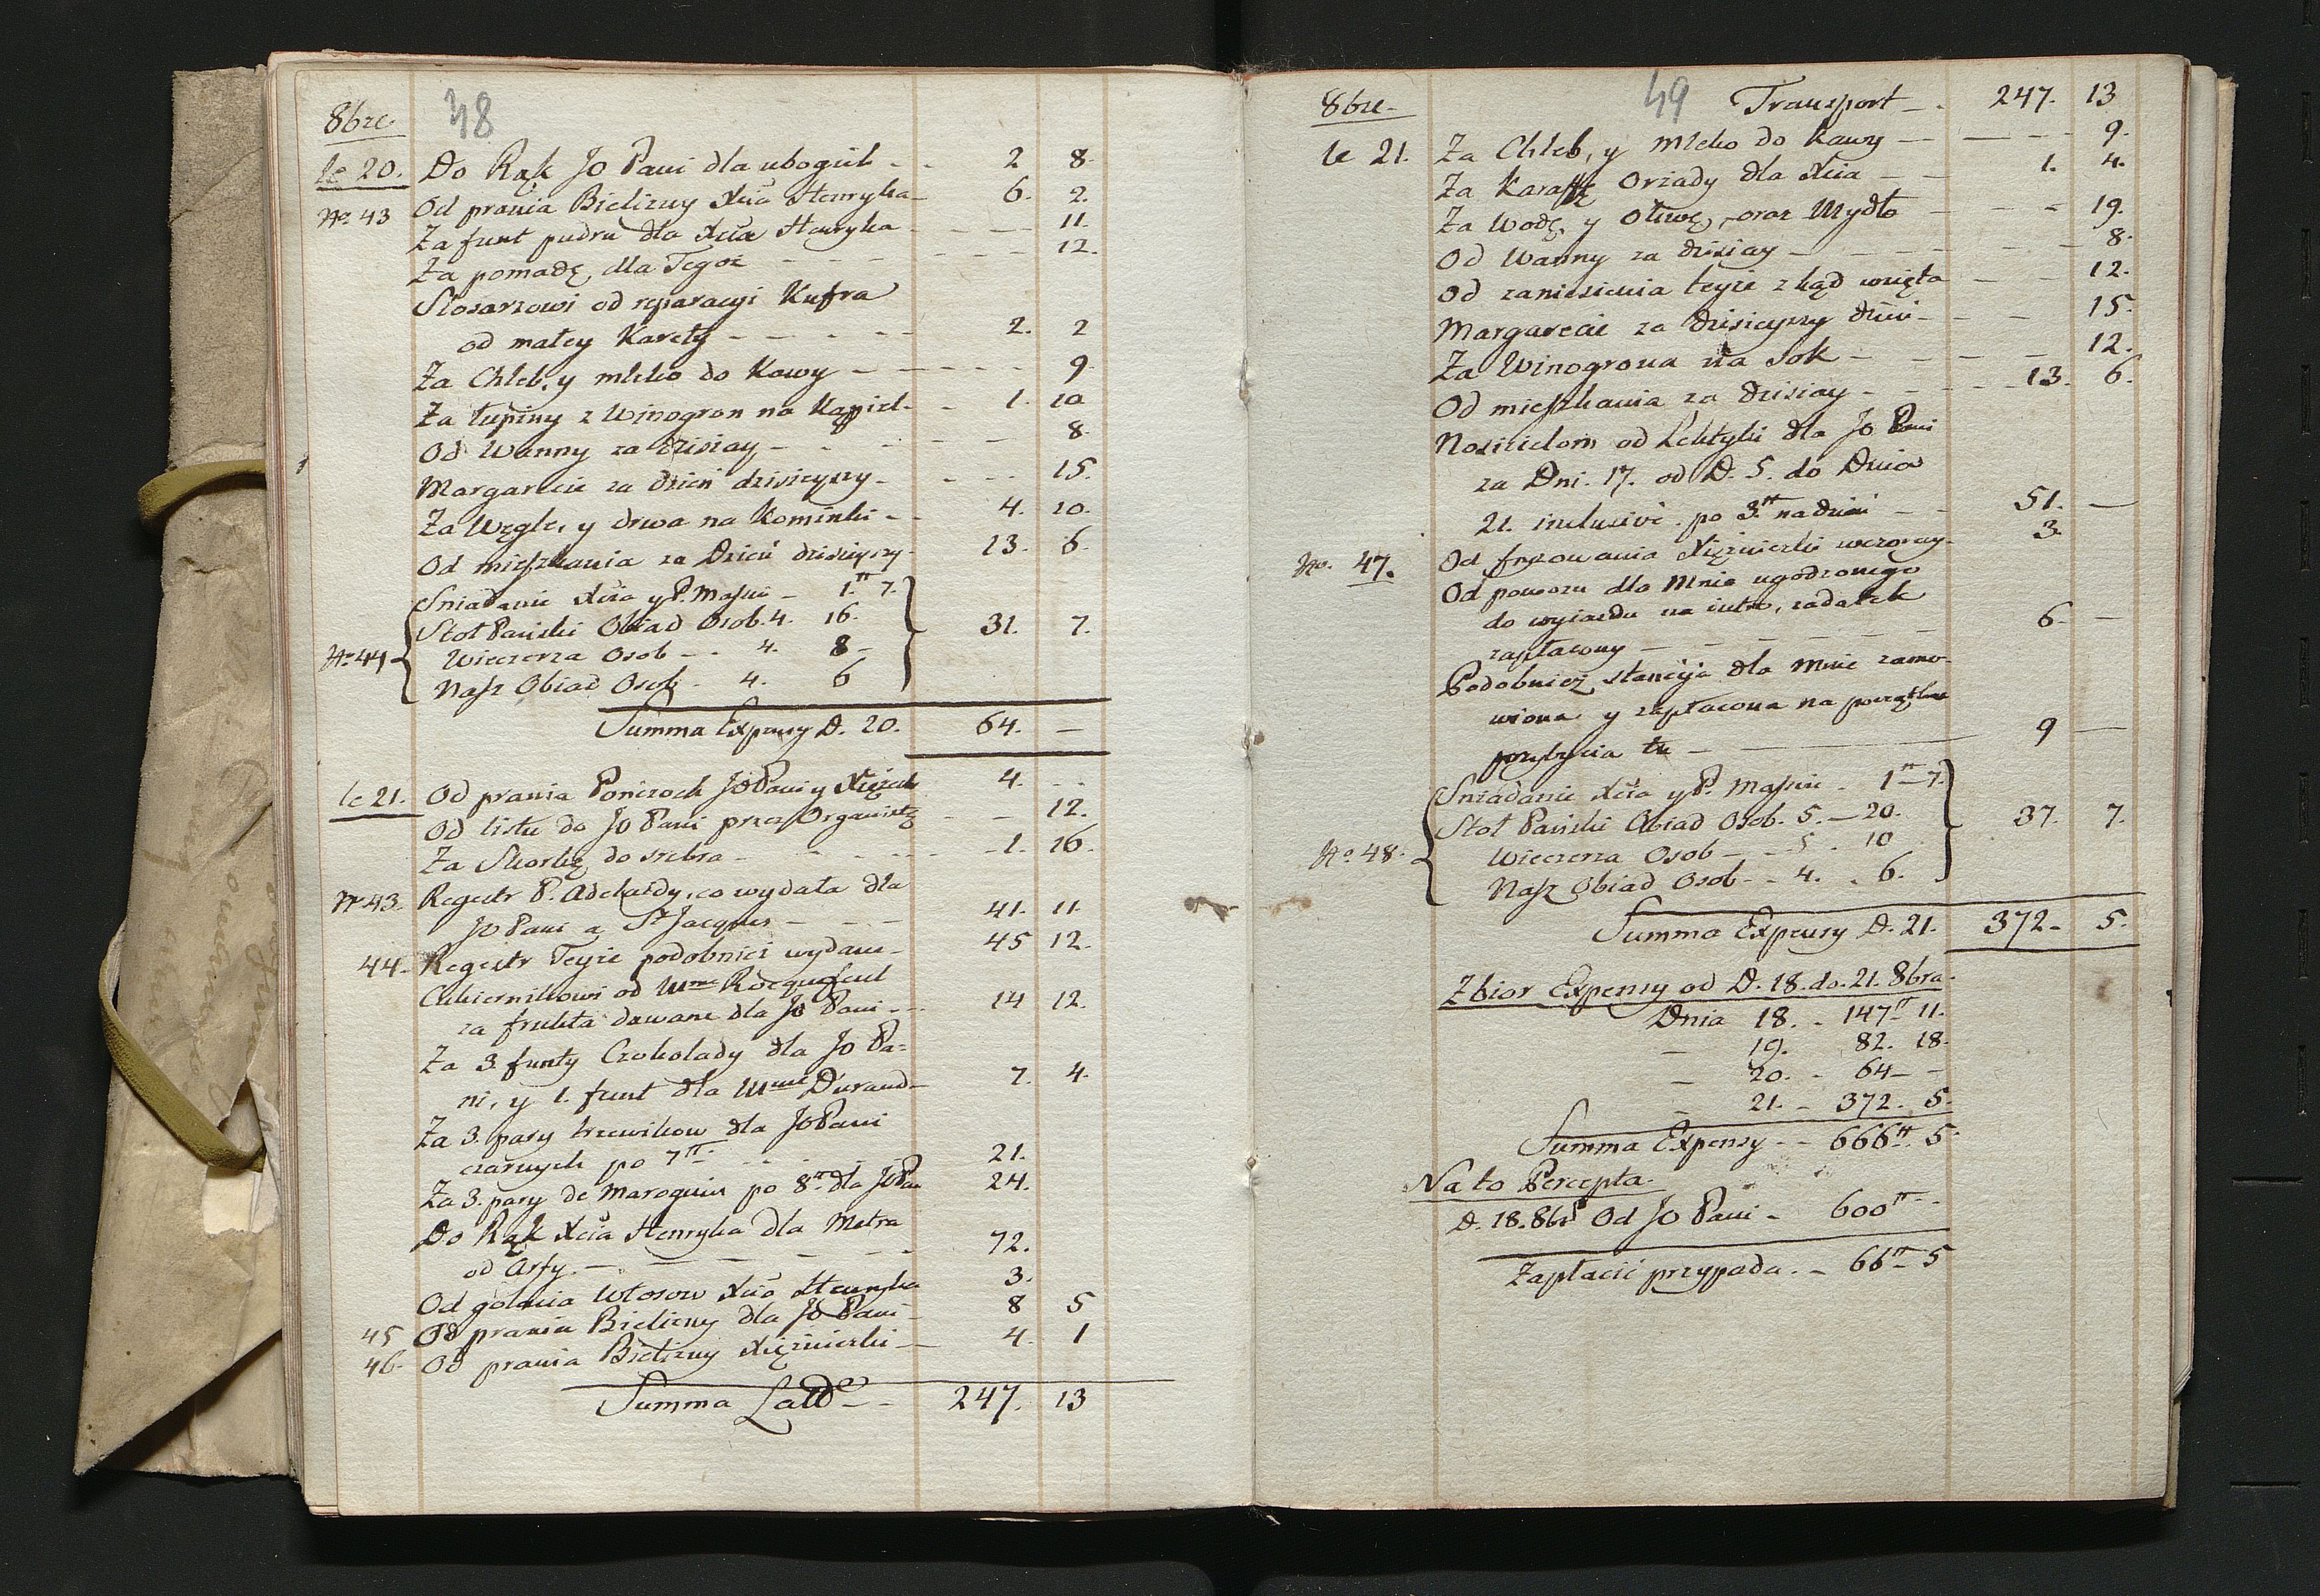 48
8bre
le 20. Do Rąk JO Pani dla ubogich - - 2 8.
No 43 Od prania Bielizny Xcia Henryka - 6. 2.
Za funt pudru dla Xcia Henryka - - - 11.
Za pomadę, dla Tegoż - - - - - 12.
Slosarzowi od reparacyi Kufra
od małey Karety - - - - - 2. 2
Za Chleb, y mleko do Kawy - - - - 9.
Za łupiny z Winogron na Kąpiel - - 1. 10
Od Wanny za dzisiay - - - - 8.
Margarecie za dzień dzisieyszy - - - - 15.
Za Węgle, y drwa na Kominki - - 4. 10.
Od mieszkania za Dzień dzisieyszy - 13. 6.
Sniadanie Xcia y P. Massin - 1.tt 7.
Stoł Pański Obiad Osob. 4. 16.
No 44 Wieczerza Osob - - 4. 8 - 31. 7.
Nasz Obiad Osob - 4. 6
Summa Expensy D. 20. 64. -
le 21. Od prania Pończoch JO Pani y Xiężnki 4. - -
Od listu do JO Pani przez Organistę - - 12.
Za Skorkę do srebra - - - - - 1. 16.
No 43. Regestr P. Adelaidy, co wydała dla
JO Pani a St Jacques - - - 41. 11.
44. Regestr Teyże podobnież wydane - 45 12.
Cukiernikowi od Mme Rocquefeuil
za frukta dawane dla JO Pani - - 14 12.
Za 3. funty Czokolady dla JO Pa-
ni, y 1. funt dla Mme Durand - 7. 4.
Za 3. pary trzewikow dla JO Pani
czarnych po 7tt - - - - 21.
Za 3. pary de Maroquin po 8.tt dla JO Pani 24.
Do Rąk Xcia Henryka dla Metra
od Arfy - - - - - 72.
Od golenia Włosow Xcia Henryka 3.
45 Od prania Bielizny dla JO Pani - 8 5
46. Od prania Bielizny Xiężniczki - 4. 1
Summa Latus - - 247. 13
49
8bre - Transport - . 247. 13
le 21. Za Chleb, y mleko do Kawy - - - - 9.
Za Karafkę Orżady dla Xcia - - 1. 4.
Za Wodę, y Oliwę, oraz Mydło - - - 19.
Od Wanny za dzisiay - - - - 8.
Od zaniesienia teyże zkąd wzięta - - - 12.
Margarecie za dzisieyszy dzień - - - 15.
Za Winogrona na sok - - - - 12.
Od mieszkania za dzisiay - - - - 13. 6.
Nosicielom od Lektyki dla JO Pani
za Dni. 17. od D. 5. do Dnia
21. inclusivè. po 3.tt na dzień - - 51. -
No. 47. Od fryzowania Xiężniczki wczoray - 3.
Od powozu dla Mnie ugodzonego
do wyiazdu na iutro, zadatek
zapłacony - - - - - 6. -
Podobnież stancyja dla Mnie zamo-
wiona y zapłacona na początku
przybycia tu - - 9 -
Sniadanie Xcia y P. Massin . 1tt 7.
Stoł Pański Obiad Osob. 5. - 20.
No. 48. Wieczerza Osob - - 5 . 10 37. 7.
Nasz Obiad Osob - - 4. . 6.
Summa Expensy D. 21. 372. 5.
Zbior Expensy od D. 18. do. 21. 8bra.
Dnia 18. - 147tt 11.
- 19. 82. 18.
- 20. - 64 - -
- 21. - 372. 5.
Summa Expensy - - 666tt. 5.
Na to Percepta.
D. 18. 8bra Od JO Pani - 600tt - -
Zapłacić przypada. - 66tt 5